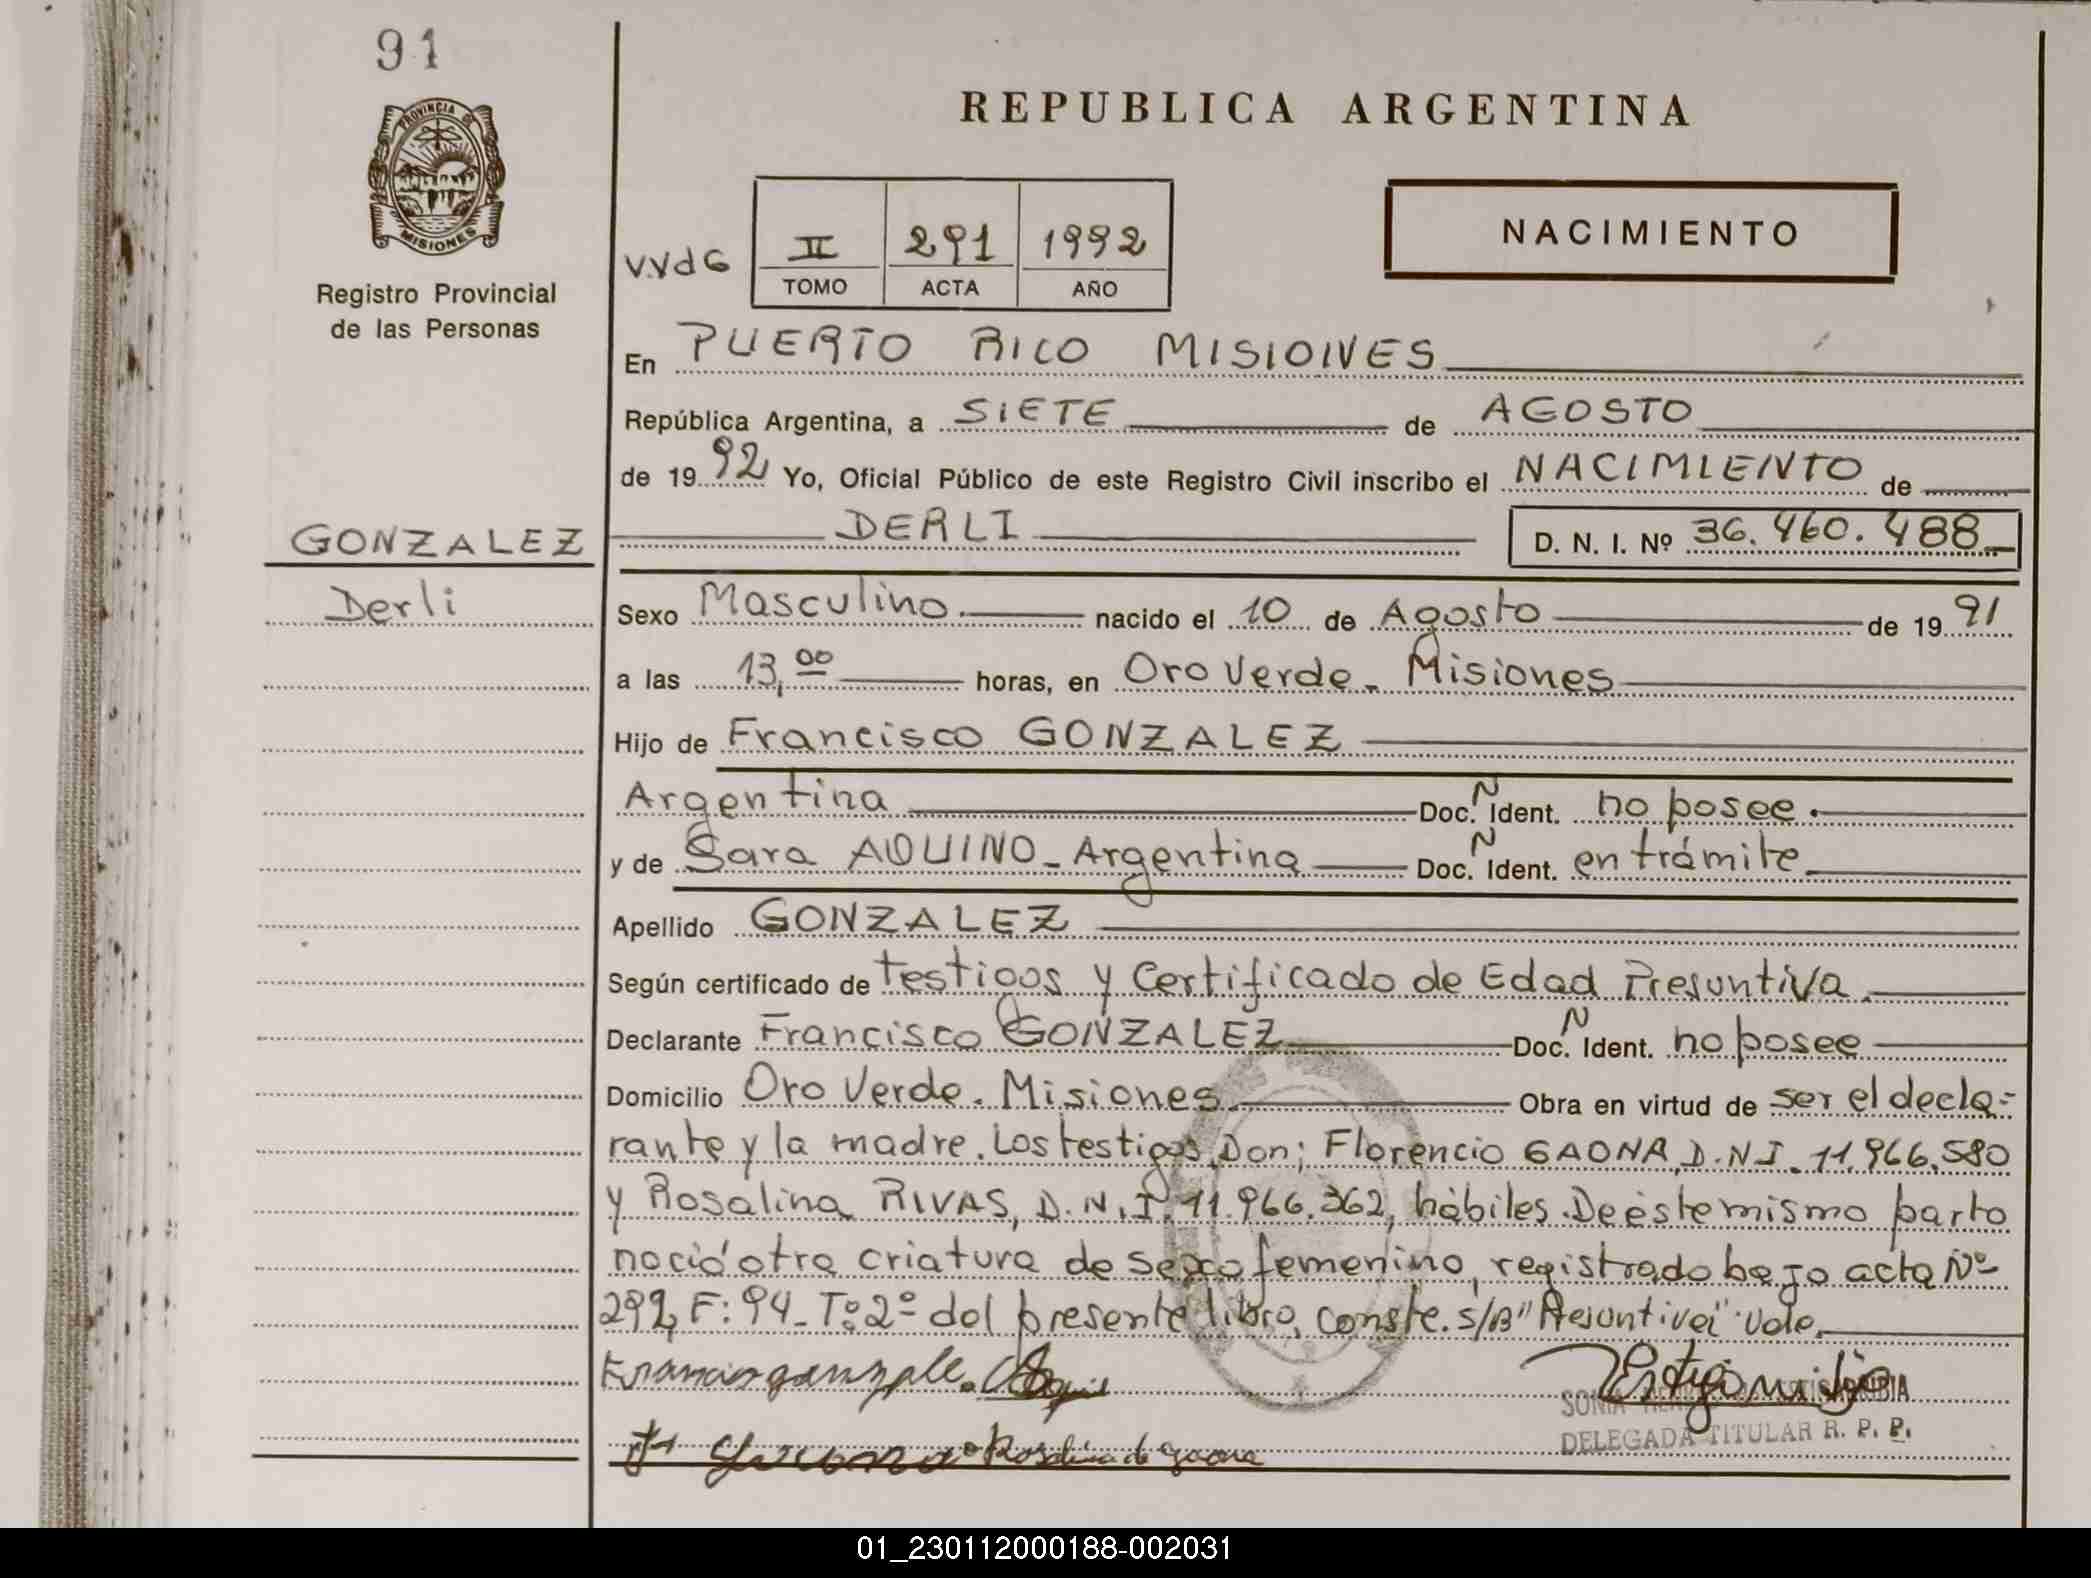 91
REPUBLICA ARGENTINA
PROVINCIA DE
MISIONES
Registro Provincial
de las Personas
V.VdG
II 291 1992
TOMO ACTA AÑO
NACIMIENTO
En PUERTO RICO MISIONES
República Argentina, a SIETE de AGOSTO
de 1992 Yo, Oficial Público de este Registro Civil inscribo el NACIMIENTO de
GONZALEZ
DERLI D. N. I. Nº 36.460.488
Derli
Sexo Masculino. nacido el 10 de Agosto de 1991
a las 13,00 horas, en Oro Verde - Misiones
Hijo de Francisco GONZALEZ
Argentina Doc. N Ident. no posee.
y de Sara AQUINO - Argentina Doc. N Ident. en trámite
Apellido GONZALEZ
Según certificado de testigos y Certificado de Edad Presuntiva.
Declarante Francisco GONZALEZ Doc. N Ident. no posee
Domicilio Oro Verde. Misiones. Obra en virtud de ser el decla=
rante y la madre. Los testigos, Don; Florencio GAONA, D.N.I. 11.966.580
y Rosalina RIVAS, D.N.I. 11.966.362, hábiles. De éste mismo parto
nació otra criatura de sexo femenino, registrado bajo acta Nº
292, F: 94 - Tº: 2º del presente libro, conste. S/B "Presuntiva" Vale.
Rosalina de gaona
SONIA
DELEGADA TITULAR R. P. P.
01_230112000188-002031